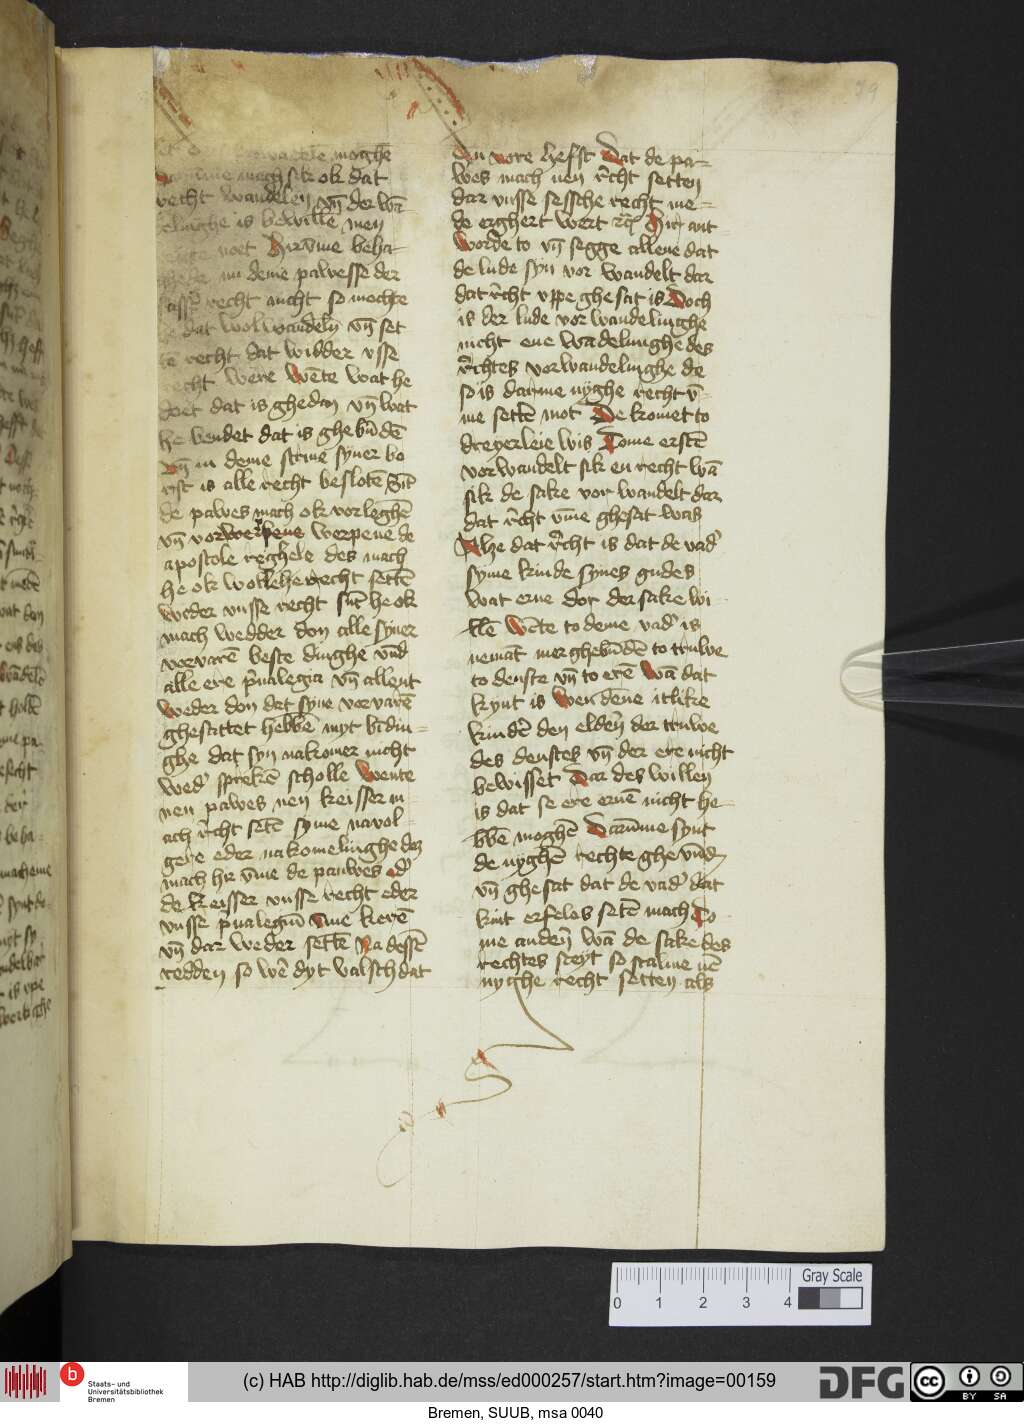 wandele moghē
mach sik ok dat
recht wandelen vn̄ der wā
delinghe is bewillē men
noet Hirv̄me beha
in deme pawesse der
recht macht so mochte
he dat wol wandelē vn̄ set
tē recht dat widder vsse
recht were wēte wat he
doet dat is ghedan vn̄ wat
he bendet dat is ghebūdē
vn̄ in deme scrine syner bo
rst is alle recht beslotē Sūt
de pawes mach ok vorlegḣē
vn̄ vorwerpene werpene de
apostole reghele des mach
he ok wolkehe recht settē
weder vnsse recht sūt he ok
mach wedder don alle syner
vorvarē beste dinghe vn̄d
alle ere p̄uilegia vn̄ allent
weder don det syne vorvarē
ghesattet hebbē myt bidin=
ghe dat syn nakomer nicht
wed̓ sprekē scholle wente
nen pawes nen keisser m
ach r̄cht setē syme navol-
gere eder nakomelinghe doz
mach hir v̄me de pauwes od̓
de keisser vnsse recht eder
vnsse p̄uilegiū v̄me kerē
vn̄ dar weder settē Na dessē
redden so wē dyt valsch dat
du vore lyefst Dat de pa-
wes mach nen r̄cht setten
dar vnsse sessche recht me=
de erghert wert rc̄ Hir ant
worde to vn̄ segge allene dat
de lude syn vor wandelt dar
dat r̄cht vppe ghesat is Doch
is der lude vor wandelinghe
nicht ene wādelinghe des
r̄chtes vorwandelinghe de
so is darme nyghe recht v̄-
me settē mot De komet to
dreyerleie wis Tome erstē
vorwandelt sik en recht wā
sik de sake vor wandelt dar
dat r̄cht v̄me ghesat was
Alze dat r̄cht is dat de vad̓
syme kinde synes gudes
wat erue dor der sake wi-
llē wēte to deme vad̓ is
nemāt mer ghebūdē to truwe
to denste vn̄ to erē wā dat
kynt is wen dēne itlike
kindē den eldēn der truwe
des denstes vn̄ der ere nicht
bewisset Dar des willen
is dat se ere eruē nicht he-
bbē moghē Darv̄me synt
de nyghē rechte ghe vūdē
vn̄ ghesat dat de vad̓ dat
kint erfelos setē mach To
me andeñ wā de sake des
rechtes steyt so scalme nē
nyghe recht setten als
79
Gray Scale
0 1 2 3 4
Staats- und
Universitätsbibliothek
Bremen
(c) HAB http://diglib.hab.de/mss/ed000257/start.htm?image=00159
DFG
cc BY SA
Bremen, SUUB, msa 0040